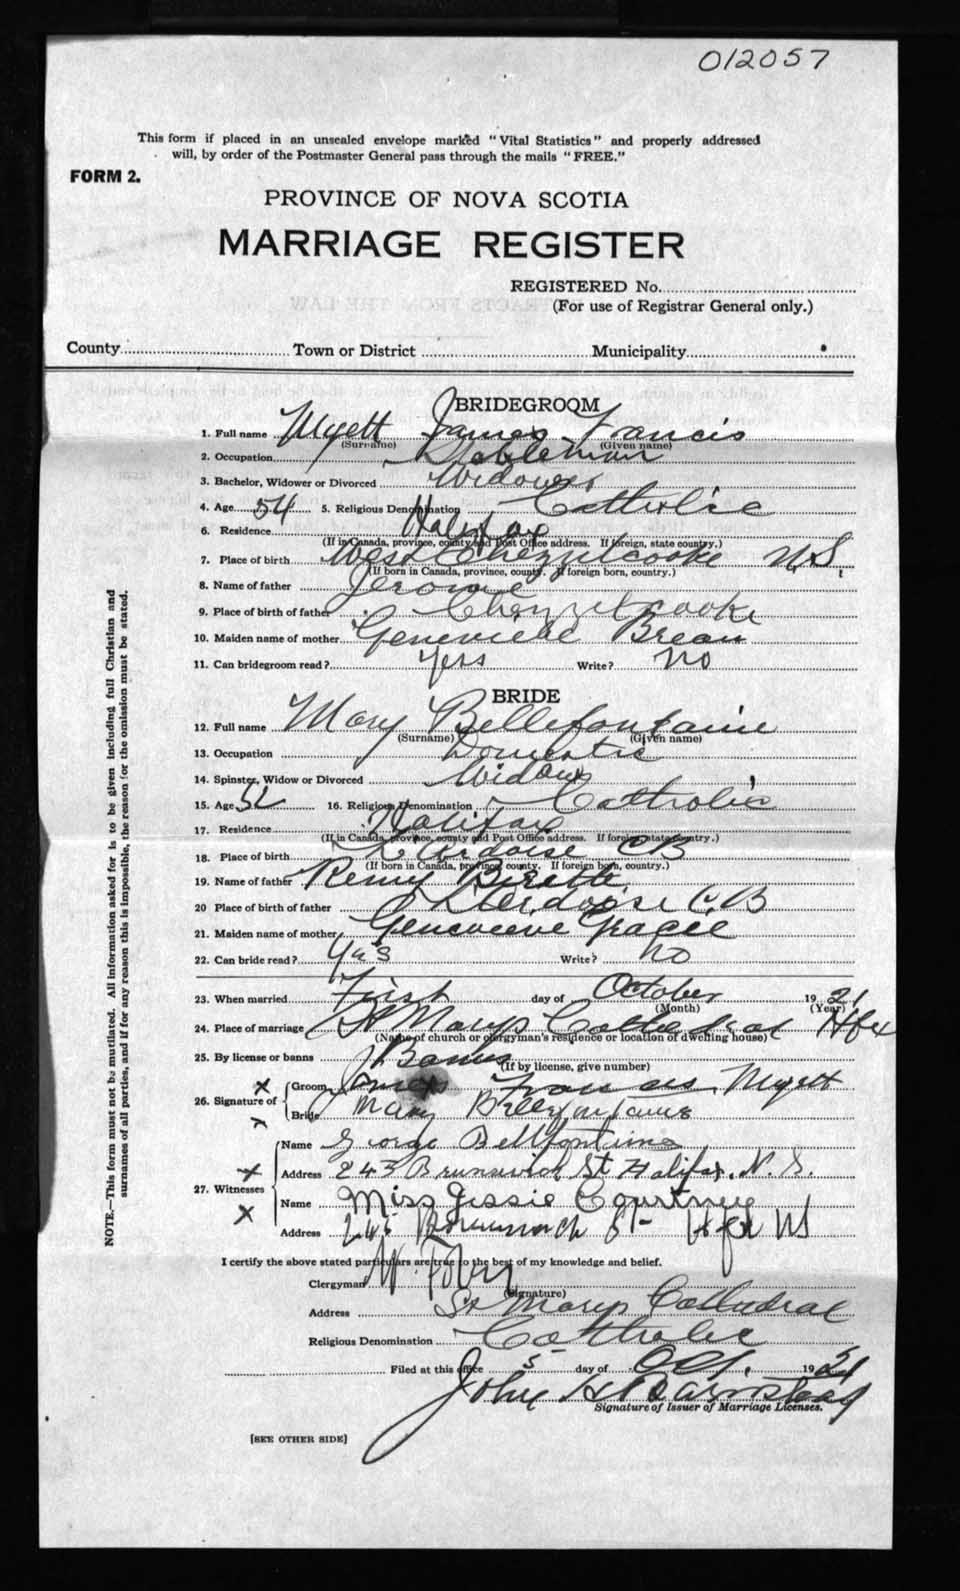 012057
This form if placed in an unsealed envelope marked "Vital Statistics" and properly addressed
will, by order of the Postmaster General pass through the mails "FREE."
FORM 2.
PROVINCE OF NOVA SCOTIA
MARRIAGE REGISTER
REGISTERED No.
(For use of Registrar General only.)
County Town or District Municipality
BRIDEGROOM
1. Full name Myett James Francis
(Surname) (Given name)
2. Occupation Stableman
3. Bachelor, Widower or Divorced Widower
4. Age 54 5. Religious Denomination Catholic
6. Residence Halifax
(If in Canada, province, county and Post Office address. If foreign, state country.)
7. Place of birth West Chezzetcooke N.S.
(If born in Canada, province, county. If foreign born, country.)
8. Name of father Jerome
9. Place of birth of father Chezzetcooke
10. Maiden name of mother Genevieve
11. Can bridegroom read? yes Write? No
BRIDE
12. Full name Mary Bellefontaine
(Surname) (Given name)
13. Occupation Domestic
14. Spinster, Widow or Divorced Widow
15. Age 52 16. Religious Denomination Catholic
17. Residence Halifax
(If in Canada, province, county and Post Office address. If foreign, state country.)
18. Place of birth CB
(If born in Canada, province, county. If foreign born, country.)
19. Name of father Remy
20 Place of birth of father C.B
21. Maiden name of mother Genevieve
22. Can bride read? Yes Write? No
23. When married First day of October 1921
(Month) (Year)
24. Place of marriage St Marys Cathedral Hfx
(Name of church or clergyman's residence or location of dwelling house)
25. By license or banns Banns
(If by license, give number)
26. Signature of x Groom James Francis Myett
Bride Mary Bellefontaine
27. Witnesses
Name George Bellfontaine
x Address 243 Brunswick St Halifax. N. S.
x Name Miss Jessie Courtney
Address 245 Brunswick St Hfx NS
I certify the above stated particulars are true to the best of my knowledge and belief.
Clergyman
(Signature)
Address St Marys Cathedral
Religious Denomination Catholic
Filed at this office 5 day of Oct. 1921
John
Signature of Issuer of Marriage Licenses.
[SEE OTHER SIDE]
NOTE.—This form must not be mutilated. All information asked for is to be given including full Christian and
surnames of all parties, and if for any reason this is impossible, the reason for the omission must be stated.